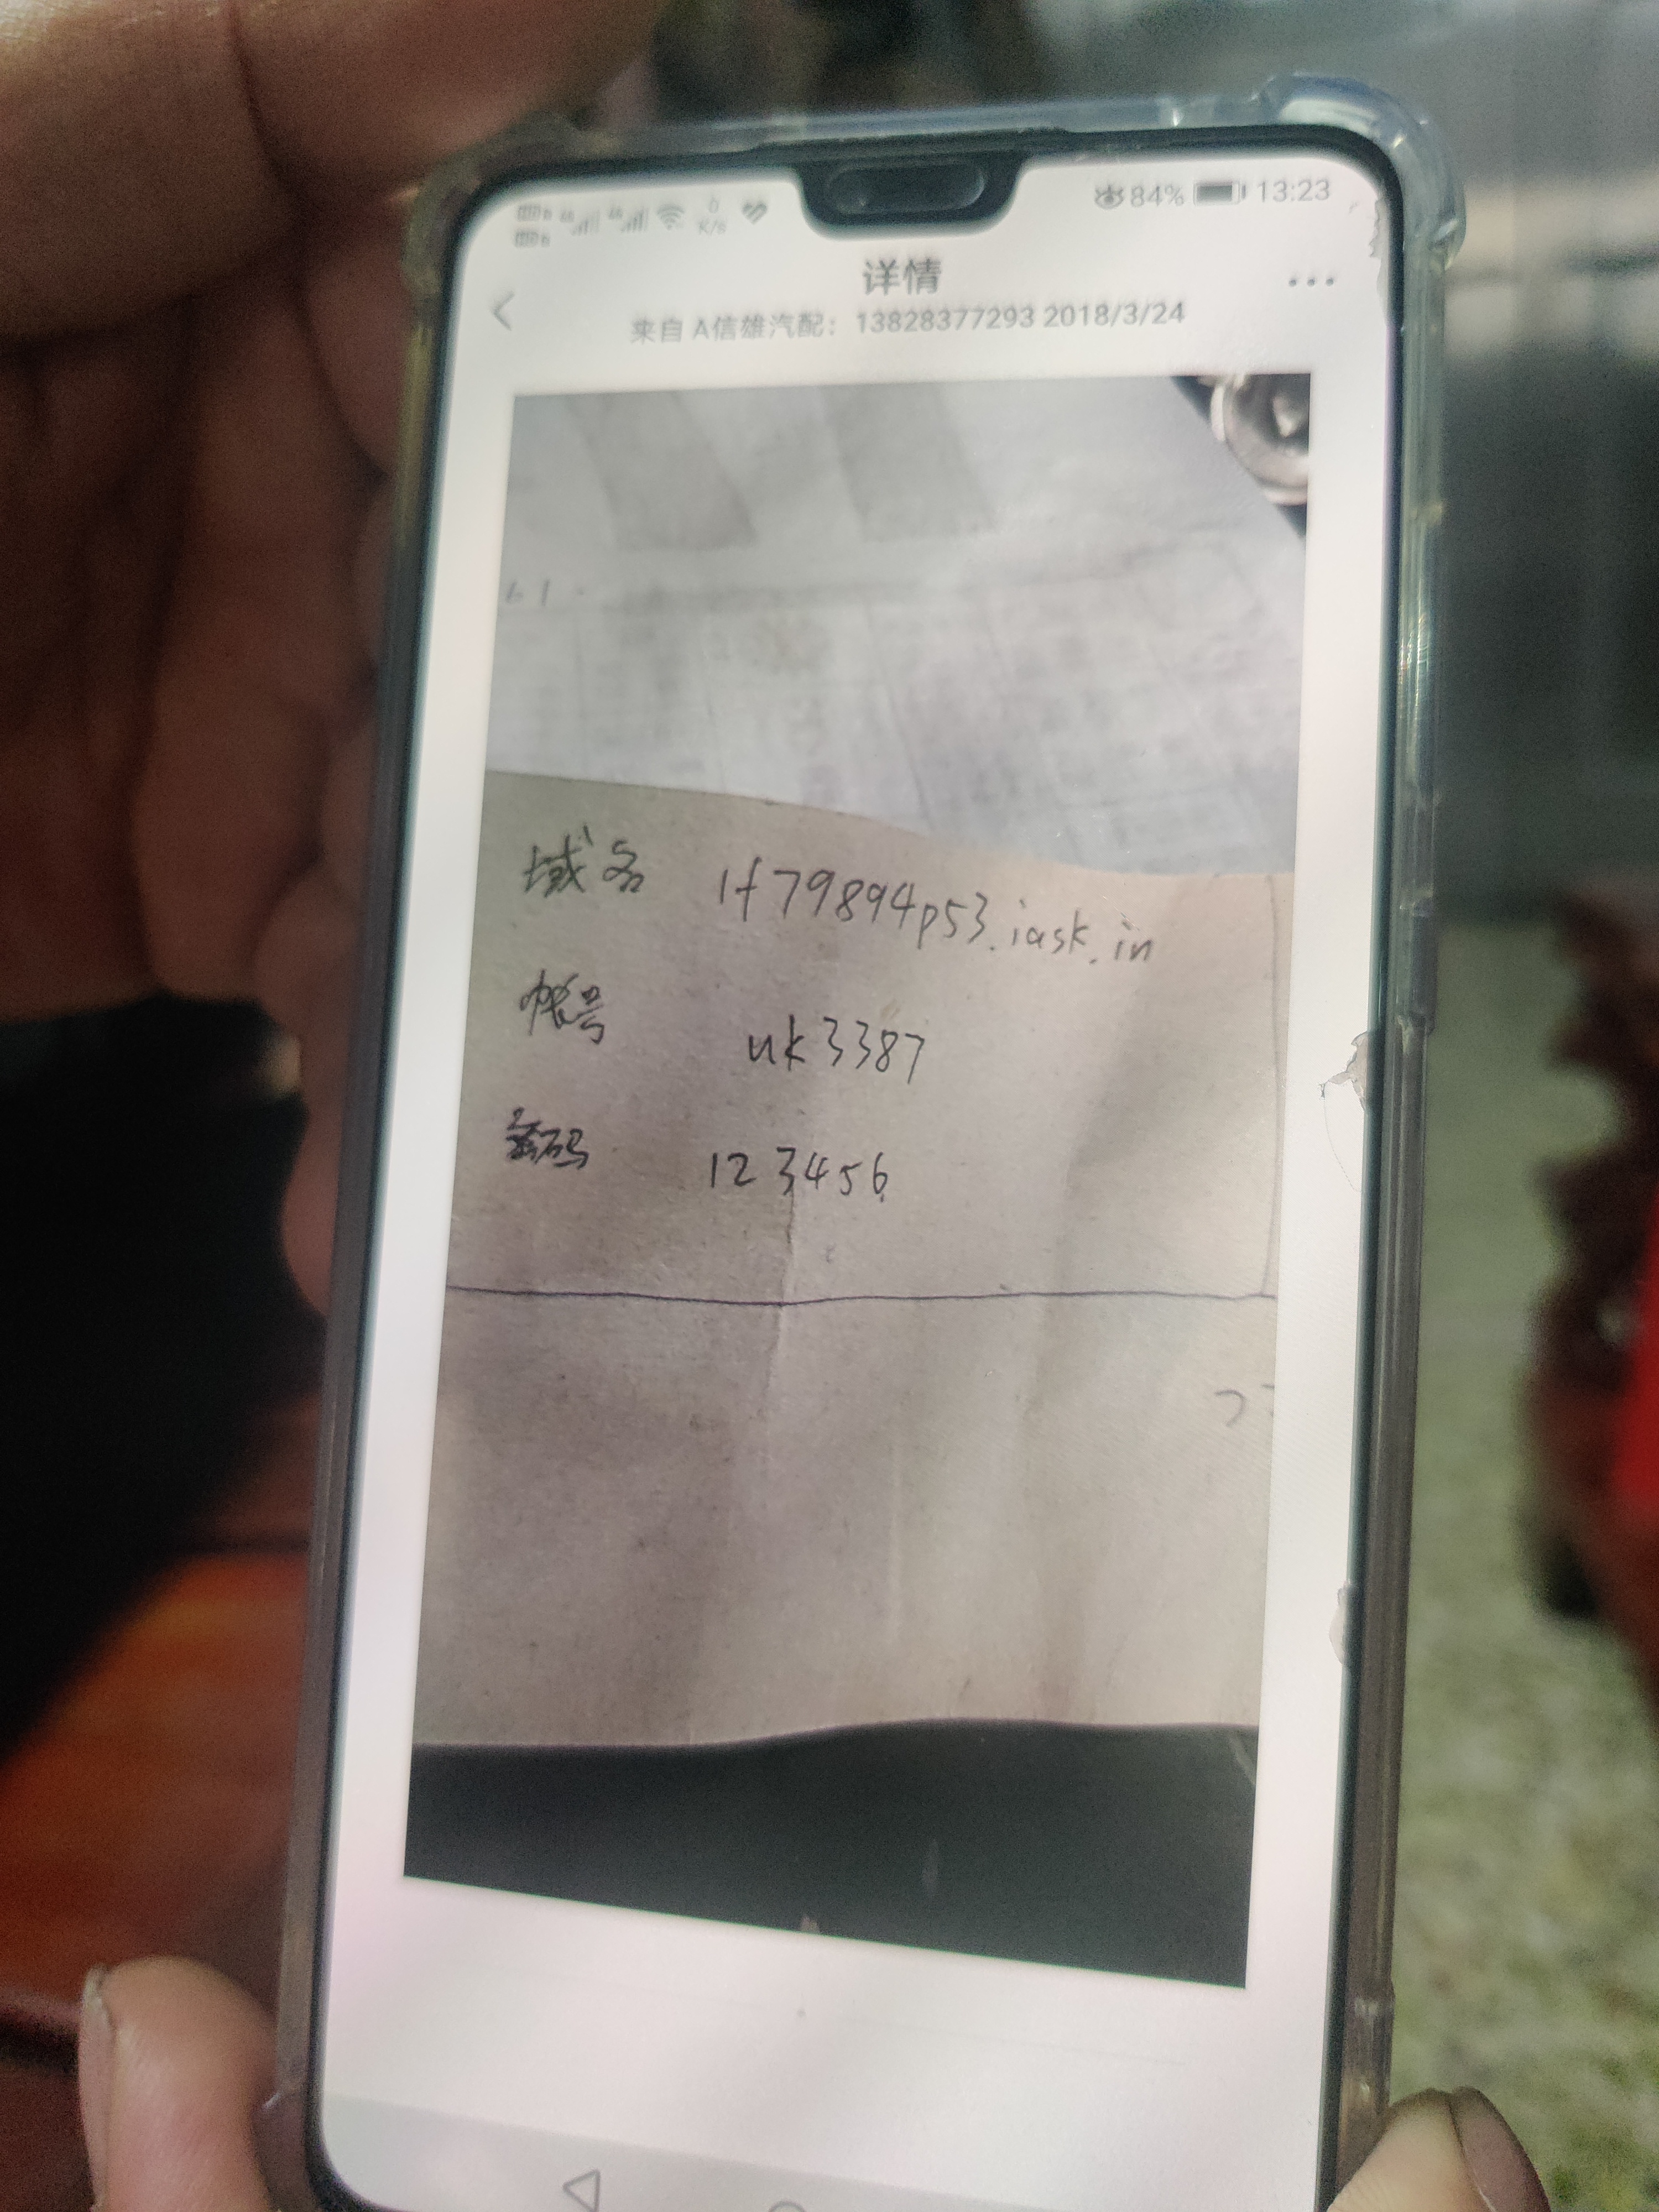 84% 13:23
0
K/s
详情
来自 A信雄汽配：13828377293 2018/3/24
61.
域名 1f79894p53.iask.in
帐号 uk3387
密码 123456